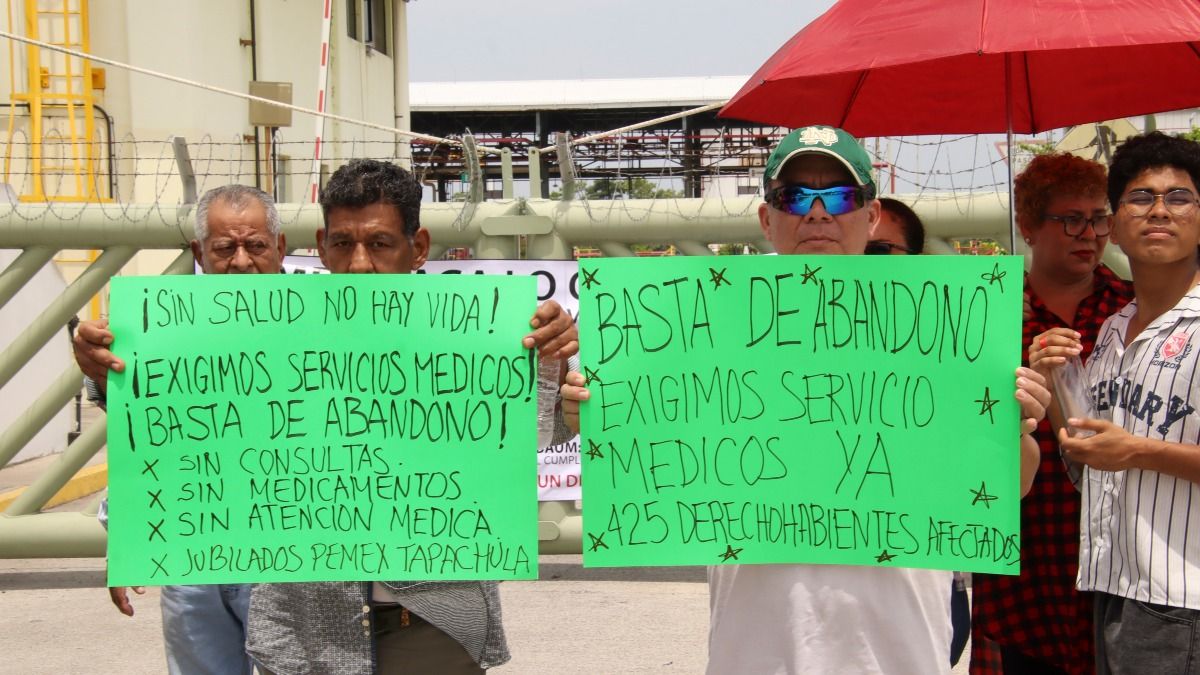 ¡SIN SALUD NO HAY VIDA!
¡EXIGIMOS SERVICIOS MEDICOS!
¡BASTA DE ABANDONO!
x SIN CONSULTAS.
x SIN MEDICAMENTOS.
x SIN ATENCION MEDICA.
x JUBILADOS PEMEX TAPACHULA
BASTA DE ABANDONO
EXIGIMOS SERVICIO
MEDICOS YA
425 DERECHOHABIENTES AFECTADOS
CUMPL
UN DI
HORIZON